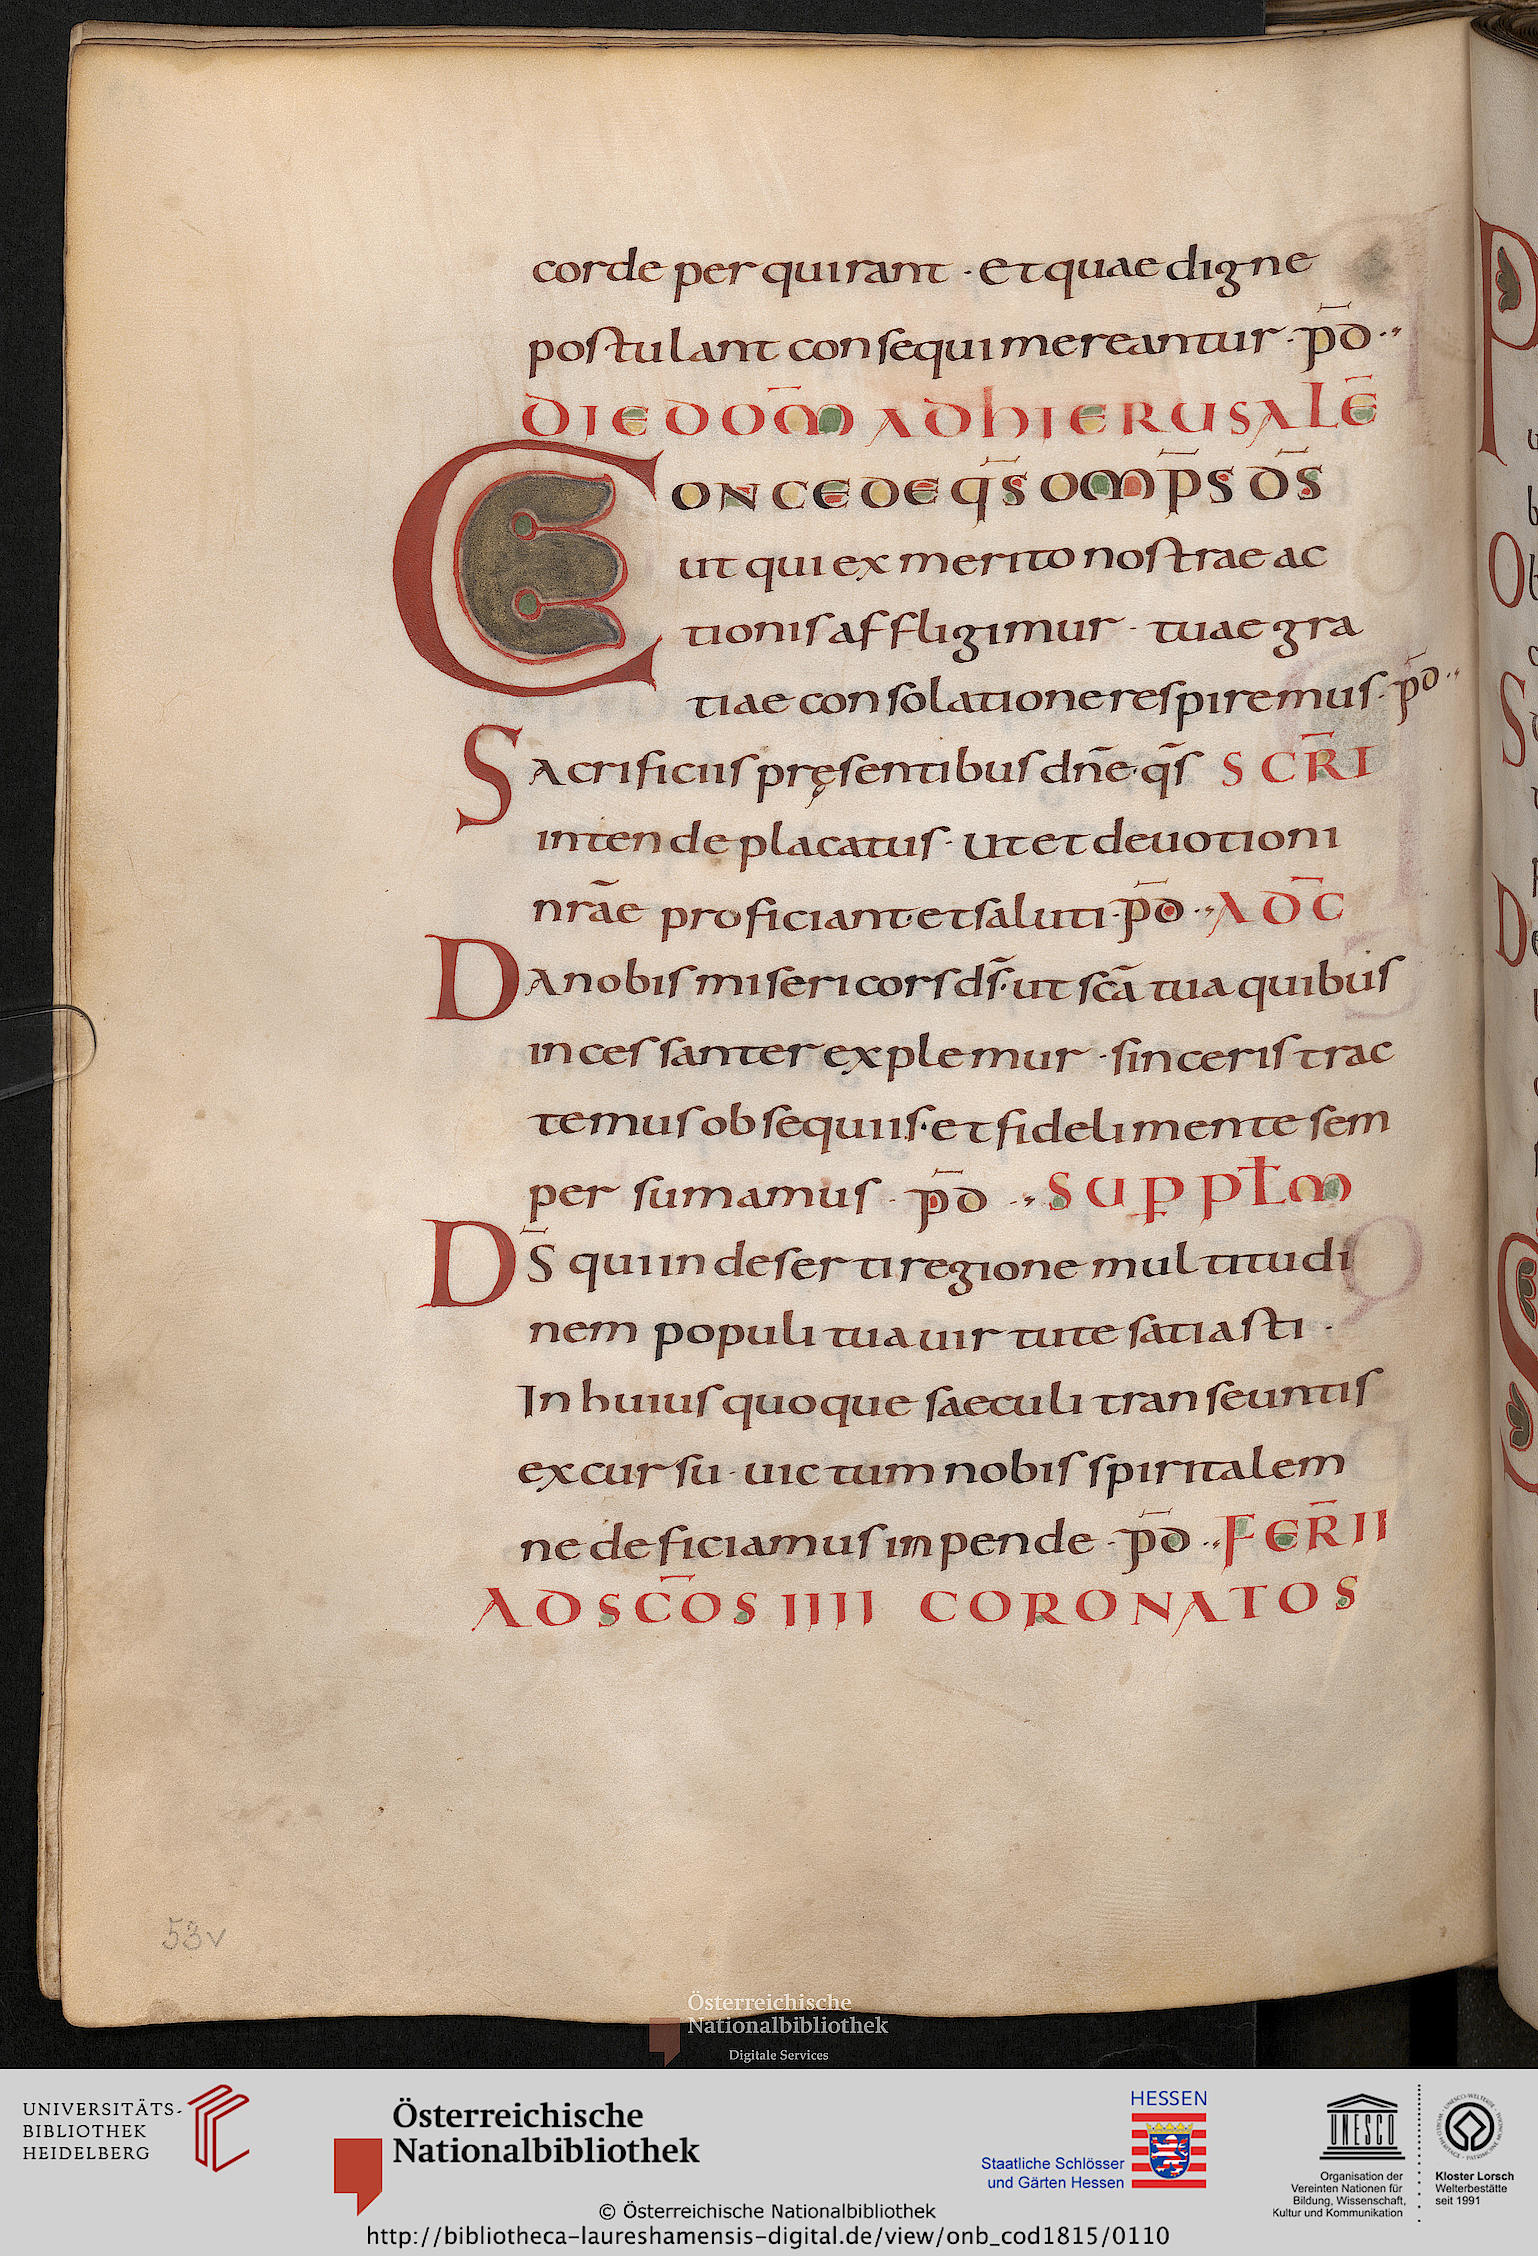 corde perquirant · et quae digne
postulant consequi mereantur · p̄d ··
DIE DOM̄ AD HIERUSALĒ
CONCEDE QS̄ OMP̄S DS̄
ut qui ex merito nostrae ac
tionis affligimur · tuae gra
tiae consolatione respiremus · p̄d ··
Sacrificiis pręsentibus dñe · qs̄ SCR̄I
intende placatus · ut et deuotioni
nrāe proficiant · et saluti · p̄d ·· AD C̄
Da nobis misericors ds̄ · ut scā tua quibus
incessanter explemur · sinceris trac
temus obsequiis · et fideli mente sem
per sumamus · p̄d ·· SUPPŁM
DS̄ qui in deserti regione multitudi
nem populi tua uirtute satiasti ·
In huius quoque saeculi transeuntis
excursu · uictum nobis spiritalem
ne deficiamus inpende · p̄d ·· FER̄ II
AD SC̄OS IIII CORONATOS
53v
Österreichische
Nationalbibliothek
Digitale Services
UNIVERSITÄTS-
BIBLIOTHEK
HEIDELBERG
Österreichische
Nationalbibliothek
HESSEN
Staatliche Schlösser
und Gärten Hessen
UNESCO
Organisation der
Vereinten Nationen für
Bildung, Wissenschaft,
Kultur und Kommunikation
Kloster Lorsch
Welterbestätte
seit 1991
© Österreichische Nationalbibliothek
http://bibliotheca-laureshamensis-digital.de/view/onb_cod1815/0110